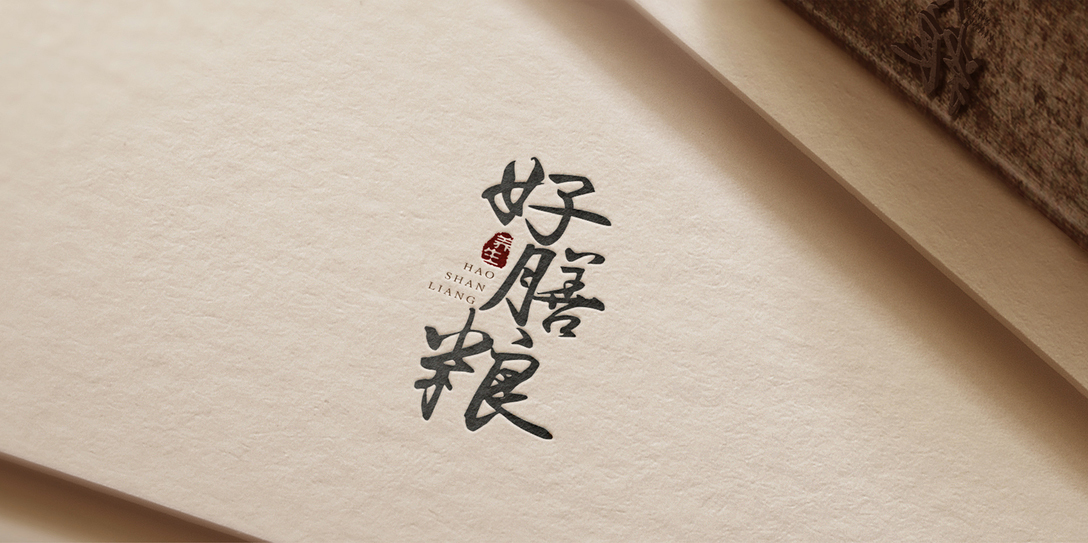 好膳粮
养生
HAO
SHAN
LIANG